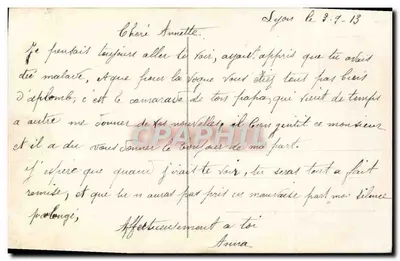 Lyon le 2-9-13
Chère Annette
Je pensais toujours aller te voir, ayant appris que tu avais
été malade, et que pour la vogue vous étiez tout pas bien
d'aplomb, c'est le camarade de ton papa, qui vient de temps
a autre me donner de vos nouvelles, il est gentil ce monsieur
et il a dû vous donner le bonjour de ma part.
J'espère que quand j'irait te voir, tu seras tout a fait
remise, et que tu n'auras pas pris en mauvaise part mon silence
prolongé,
Affectueusement a toi
Anna
CPAPHIL